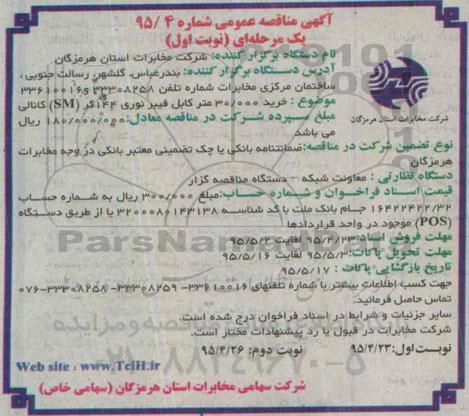 آگهی مناقصه عمومی شماره ۴ /۹۵
یک مرحله‌ای (نوبت اول)
نام دستگاه برگزار کننده: شرکت مخابرات استان هرمزگان
آدرس دستگاه برگزار کننده: بندرعباس، گلشهر، رسالت جنوبی ،
ساختمان مرکزی مخابرات شماره تلفن ۳۳۳۰۸۲۵۸ و ۳۳۶۱۰۰۱۶
موضوع : خرید ۳۰/۰۰۰ متر کابل فیبر نوری ۱۴۴کر (SM) کانالی
مبلغ سپرده شرکت در مناقصه معادل:۱۸۰/۰۰۰/۰۰۰ ریال
می باشد
شرکت مخابرات استان هرمزگان
نوع تضمین شرکت در مناقصه:ضمانتنامه بانکی یا چک تضمینی معتبر بانکی در وجه مخابرات
هرمزگان
دستگاه نظارتی : معاونت شبکه – دستگاه مناقصه گزار
قیمت اسناد فراخوان و شماره حساب:مبلغ ۳۰۰/۰۰۰ ریال به شماره حساب
۱۶۴۲۲۴۲۲/۳۲ جام بانک ملت با کد شناسه ۳۲۰۰۰۸۰۱۴۳۱۳۸ یا از طریق دستگاه
(POS) موجود در واحد قراردادها
مهلت فروش اسناد:۹۵/۴/۲۳ لغایت ۹۵/۵/۲
مهلت تحویل پاکات:۹۵/۵/۳ لغایت ۹۵/۵/۱۶
تاریخ بازگشایی پاکات : ۹۵/۵/۱۷
جهت کسب اطلاعات بیشتر با شماره تلفنهای ۳۳۶۱۰۰۱۶- ۳۳۳۰۸۲۵۹- ۳۳۳۰۸۲۵۸-۰۷۶
تماس حاصل فرمائید.
سایر جزئیات و شرایط در اسناد فراخوان درج شده است.
شرکت مخابرات در قبول یا رد پیشنهادات مختار است.
نوبت اول:۹۵/۴/۲۳ نوبت دوم: ۹۵/۴/۲۶
Web site : www.TciH.ir
شرکت سهامی مخابرات استان هرمزگان (سهامی خاص)
ParsNamad
۰۲۱-۸۸۳۴۹۶۷۰-۵